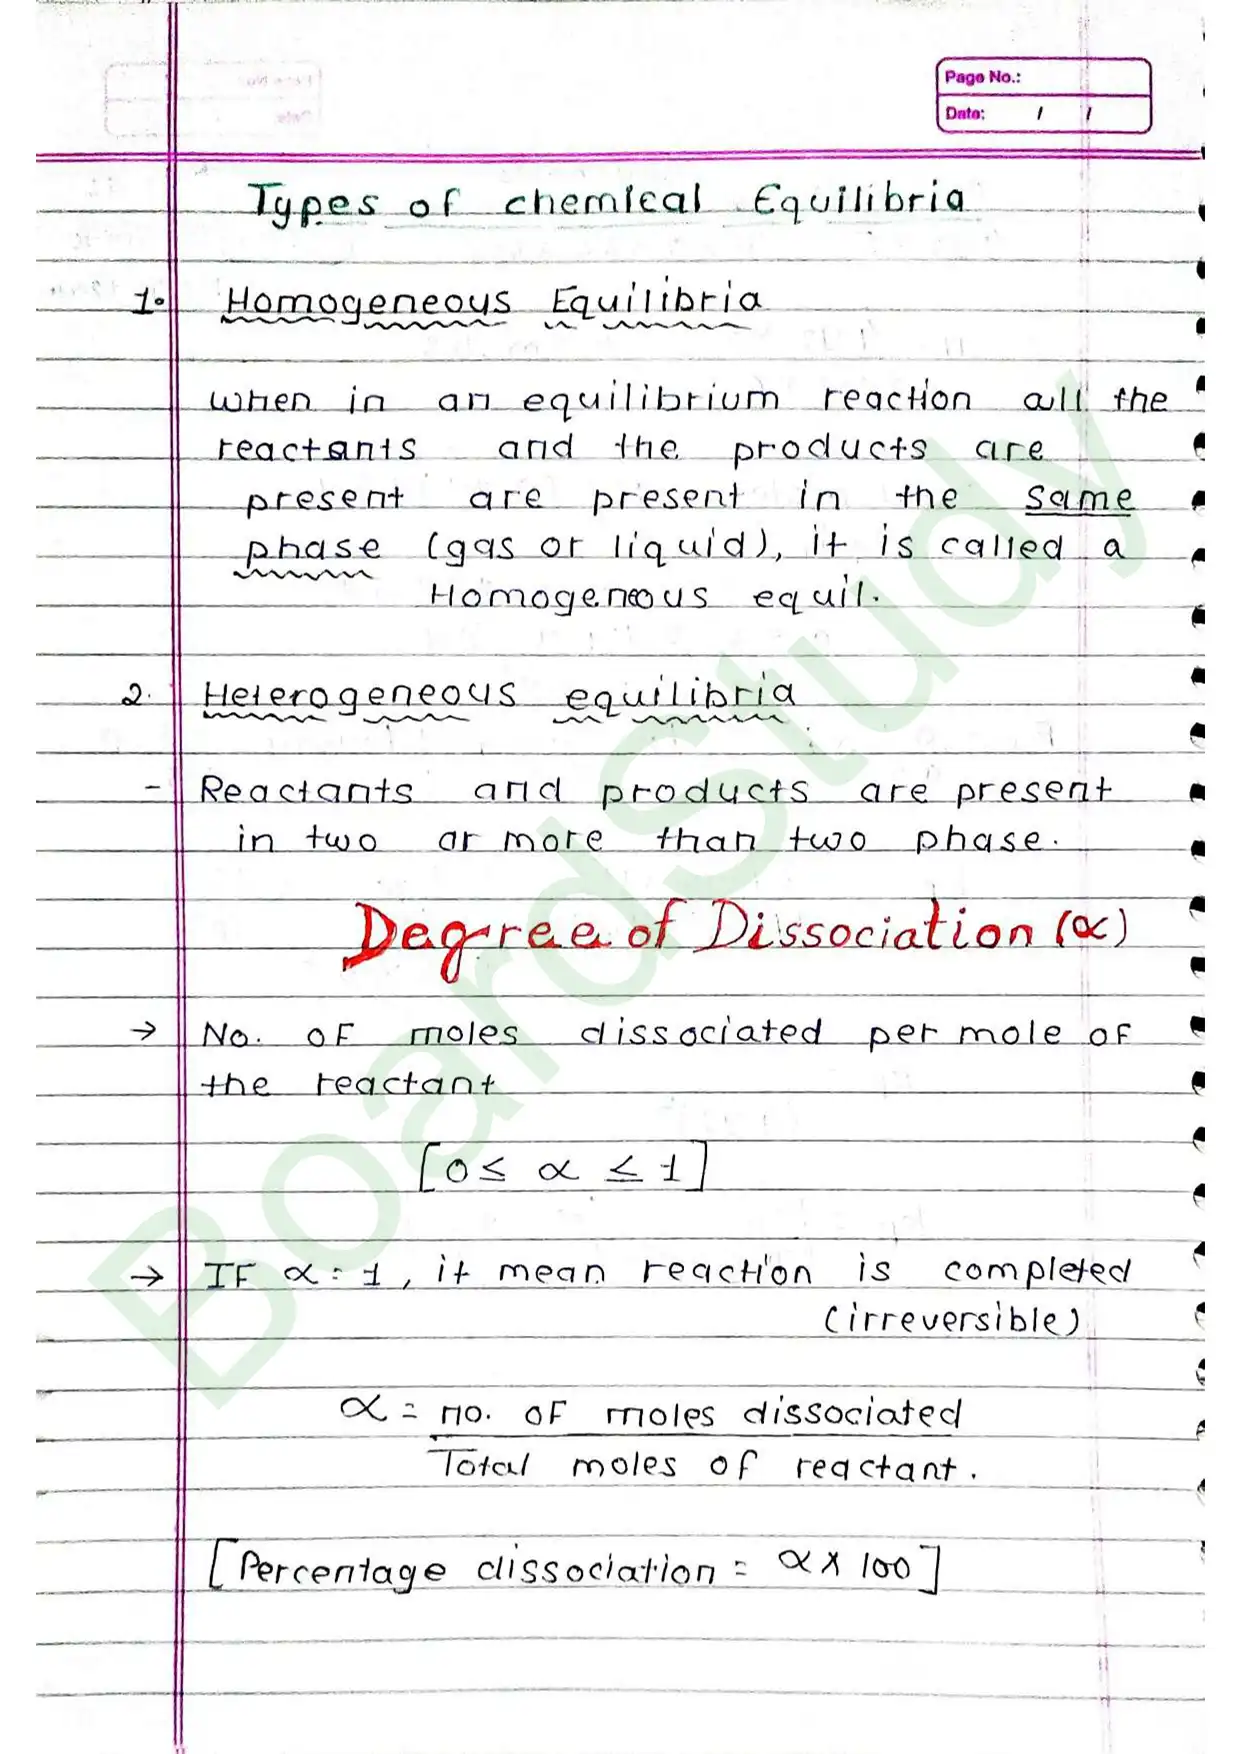 Page No.:
Date: / /
Types of chemical Equilibria
1. Homogeneous Equilibria
when in an equilibrium reaction all the
reactants and the products are
present are present in the same
phase (gas or liquid), it is called a
Homogeneous equil.
2. Heterogeneous equilibria
- Reactants and products are present
in two or more than two phase.
Degree of Dissociation (α)
→ No. of moles dissociated per mole of
the reactant
[0 ≤ α ≤ 1]
→ IF α = 1, it mean reaction is completed
(irreversible)
α = no. of moles dissociated
Total moles of reactant.
[Percentage dissociation = α × 100]
BoardStudy